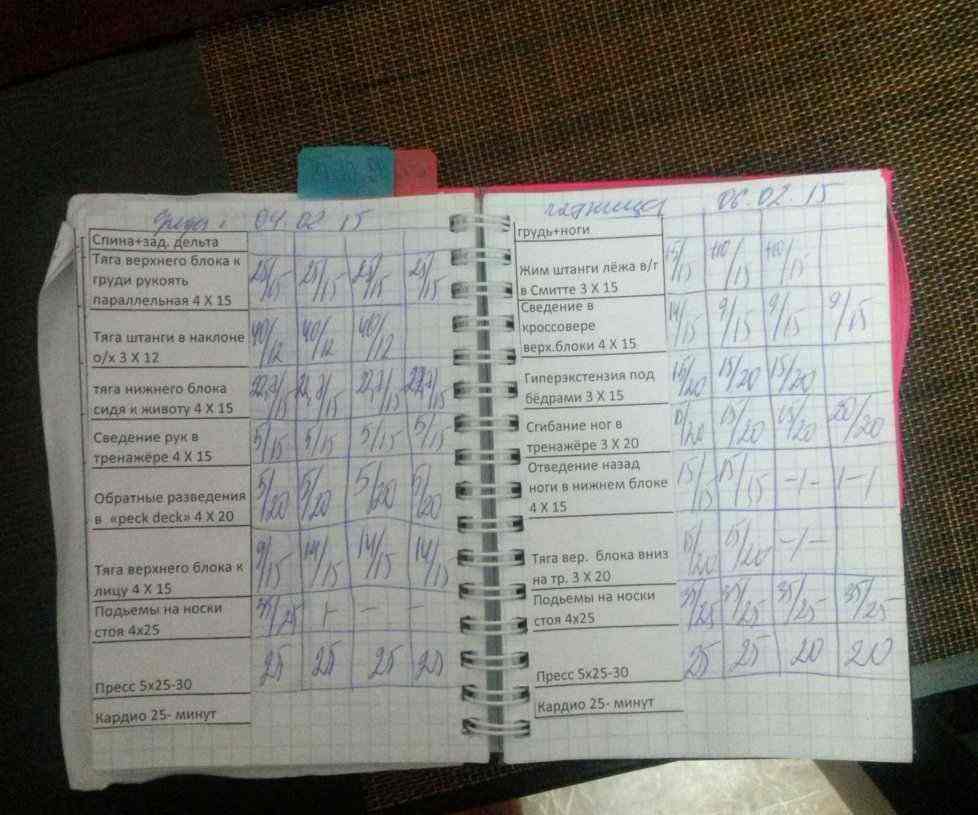 среда 04.02 15
Спина+зад. дельта
Тяга верхнего блока к
груди рукоять
параллельная 4 Х 15
25/15 25/15 25/15 25/15
Тяга штанги в наклоне
о/х 3 Х 12
40/12 40/12 40/12
тяга нижнего блока
сидя к животу 4 Х 15
Сведение рук в
тренажёре 4 Х 15
5/15 5/15 5/15 5/15
Обратные разведения
в «peck deck» 4 Х 20
5/20 5/20 5/20 5/20
Тяга верхнего блока к
лицу 4 Х 15
9/15 14/15 14/15 14/15
Подьемы на носки
стоя 4х25
35/25 - - -
Пресс 5х25-30
25 25 25 25
Кардио 25- минут
пятница 06.02.15
грудь+ноги
Жим штанги лёжа в/г
в Смитте 3 Х 15
Сведение в
кроссовере
верх.блоки 4 Х 15
14/15 9/15 9/15 9/15
Гиперэкстензия под
бёдрами 3 Х 15
15/20 15/20 15/20
Сгибание ног в
тренажёре 3 Х 20
10/20 15/20 15/20 20/20
Отведение назад
ноги в нижнем блоке
4 Х 15
15/15 15/15 -/- -/-
Тяга вер. блока вниз
на тр. 3 Х 20
15/20 15/20 -/-
Подьемы на носки
стоя 4х25
35/25 35/25 35/25 35/25
Пресс 5х25-30
25 25 20 20
Кардио 25- минут